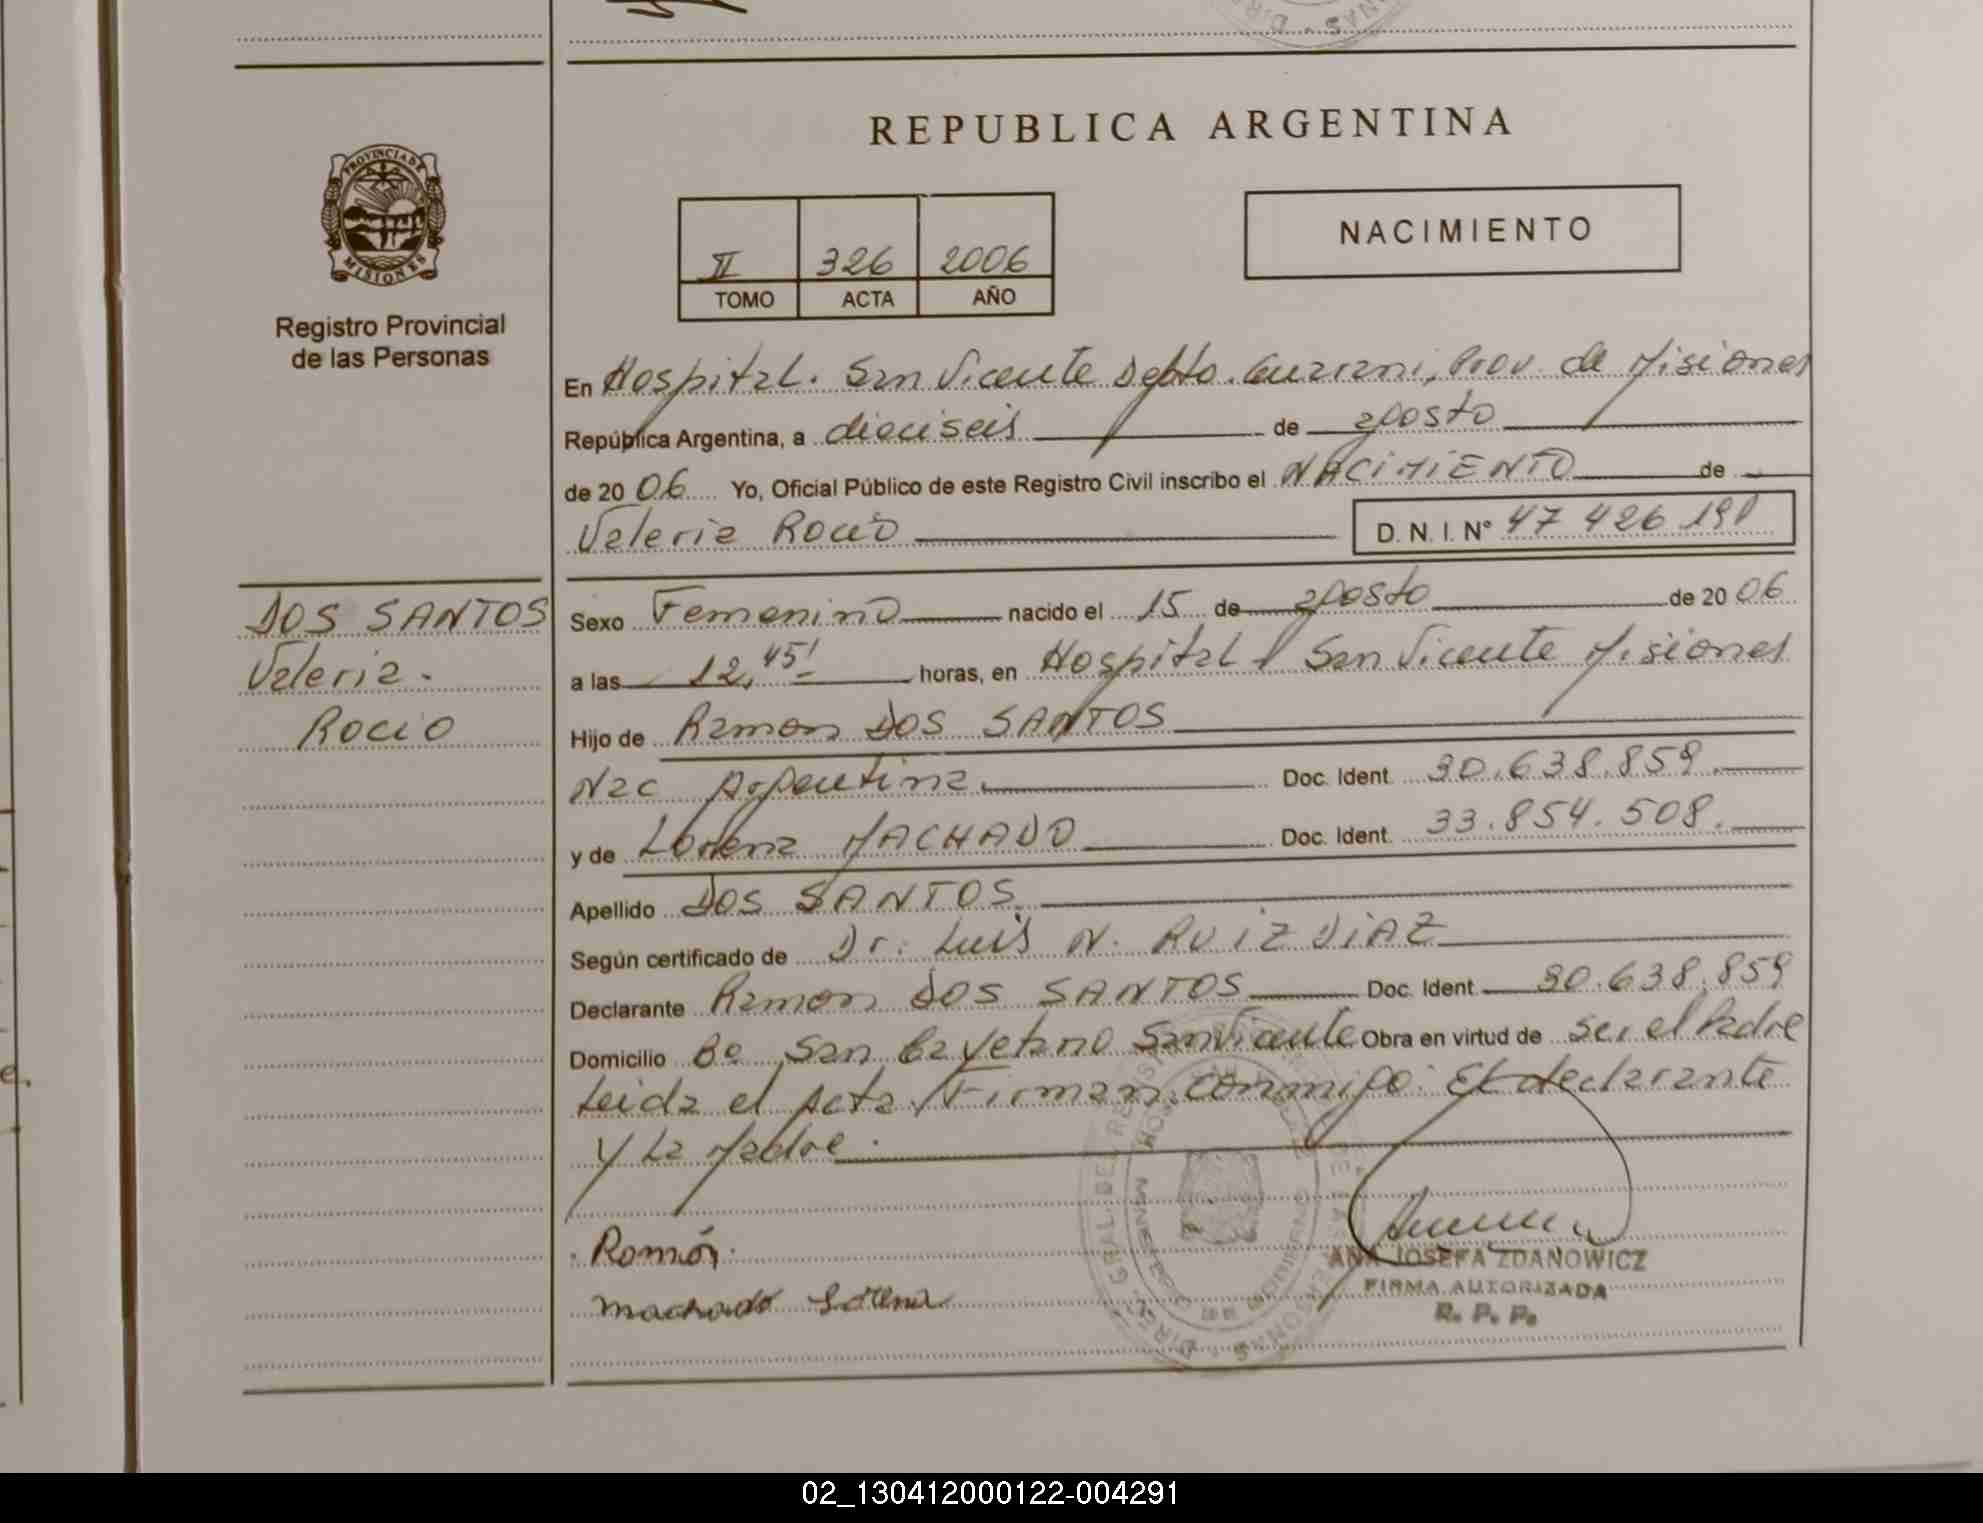 REPUBLICA ARGENTINA
PROVINCIA DE
MISIONES
Registro Provincial
de las Personas
II 326 2006
TOMO ACTA AÑO
NACIMIENTO
En Hospital. San Vicente Depto. Guarani, Prov. de Misiones
República Argentina, a dieciseis de agosto
de 2006 Yo, Oficial Público de este Registro Civil inscribo el NACIMIENTO de
Valeria Rocio D. N. I. N° 47 426 191
DOS SANTOS
Valeria.
Rocio
Sexo Femenino nacido el 15 de agosto de 2006
a las 12,45' horas, en Hospital San Vicente Misiones
Hijo de Ramon DOS SANTOS
Nac Argentina Doc. Ident. 30.638.859.
y de Lorena MACHADO Doc. Ident. 33.854.508.
Apellido DOS SANTOS.
Según certificado de Dr. Luis N. RUIZ DIAZ
Declarante Ramon DOS SANTOS Doc. Ident 30.638.859
Domicilio B° San Cayetano San Vicente Obra en virtud de ser el Padre
Leida el Acta Firman conmigo: El declarante
y La Madre.
Román
machado Lorena
ANA JOSEFA ZDANOWICZ
FIRMA AUTORIZADA
R. P. P.
02_130412000122-004291